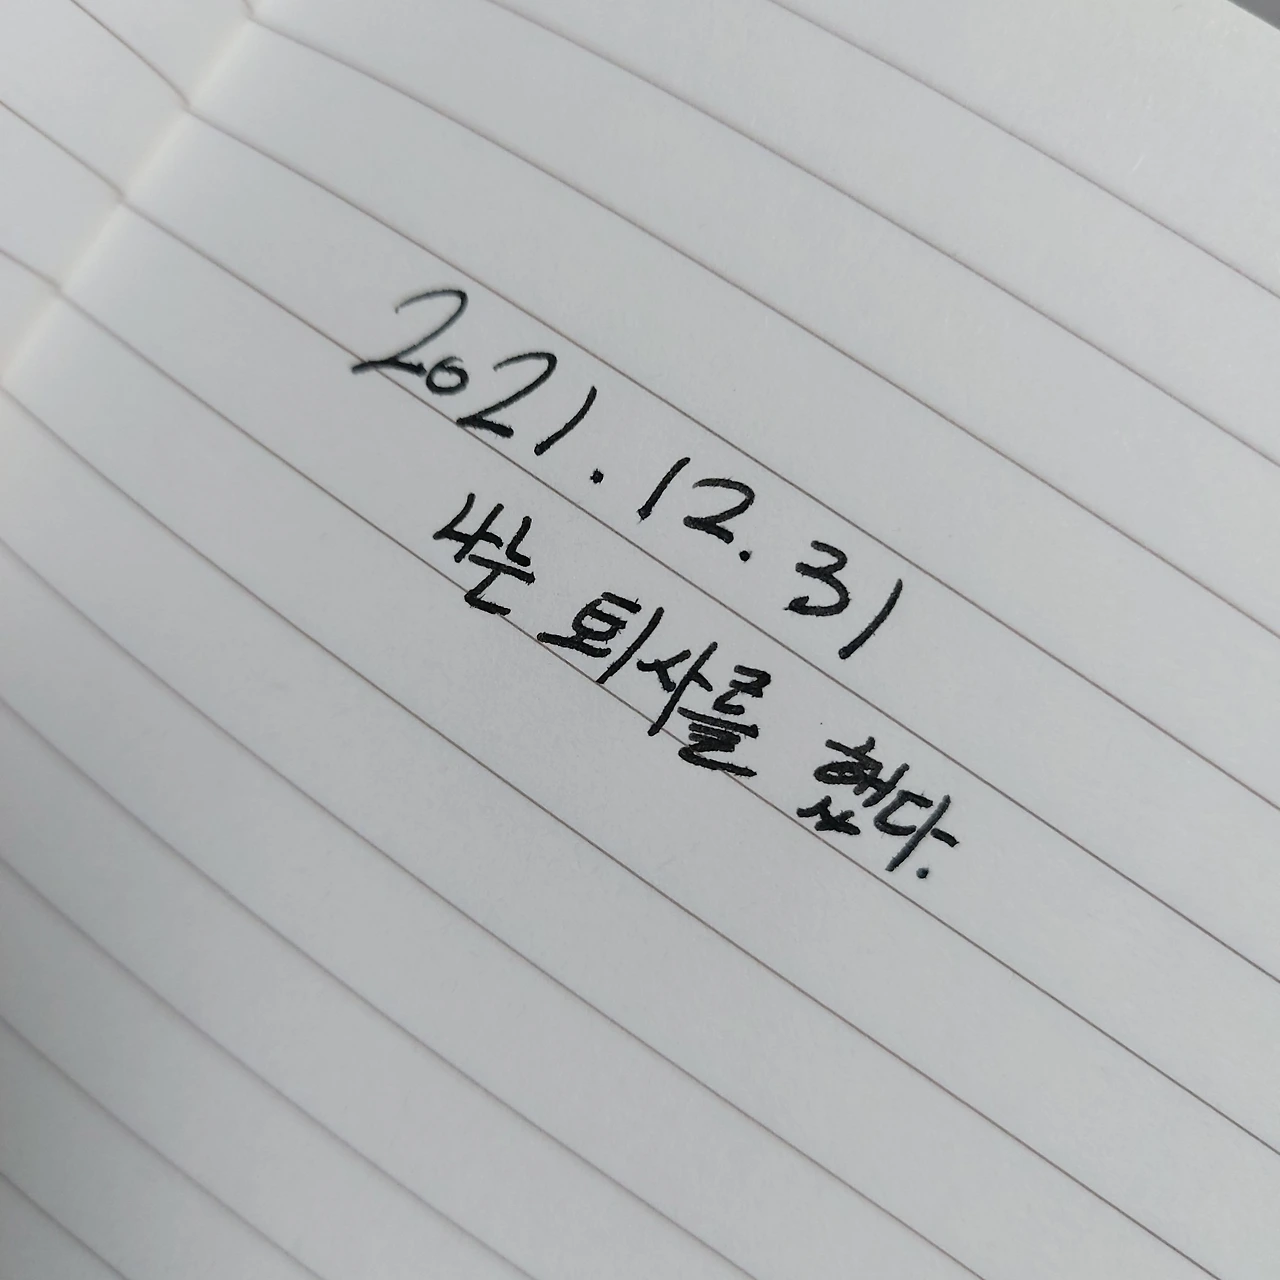 2021.12.31
나는 퇴사를 했다.